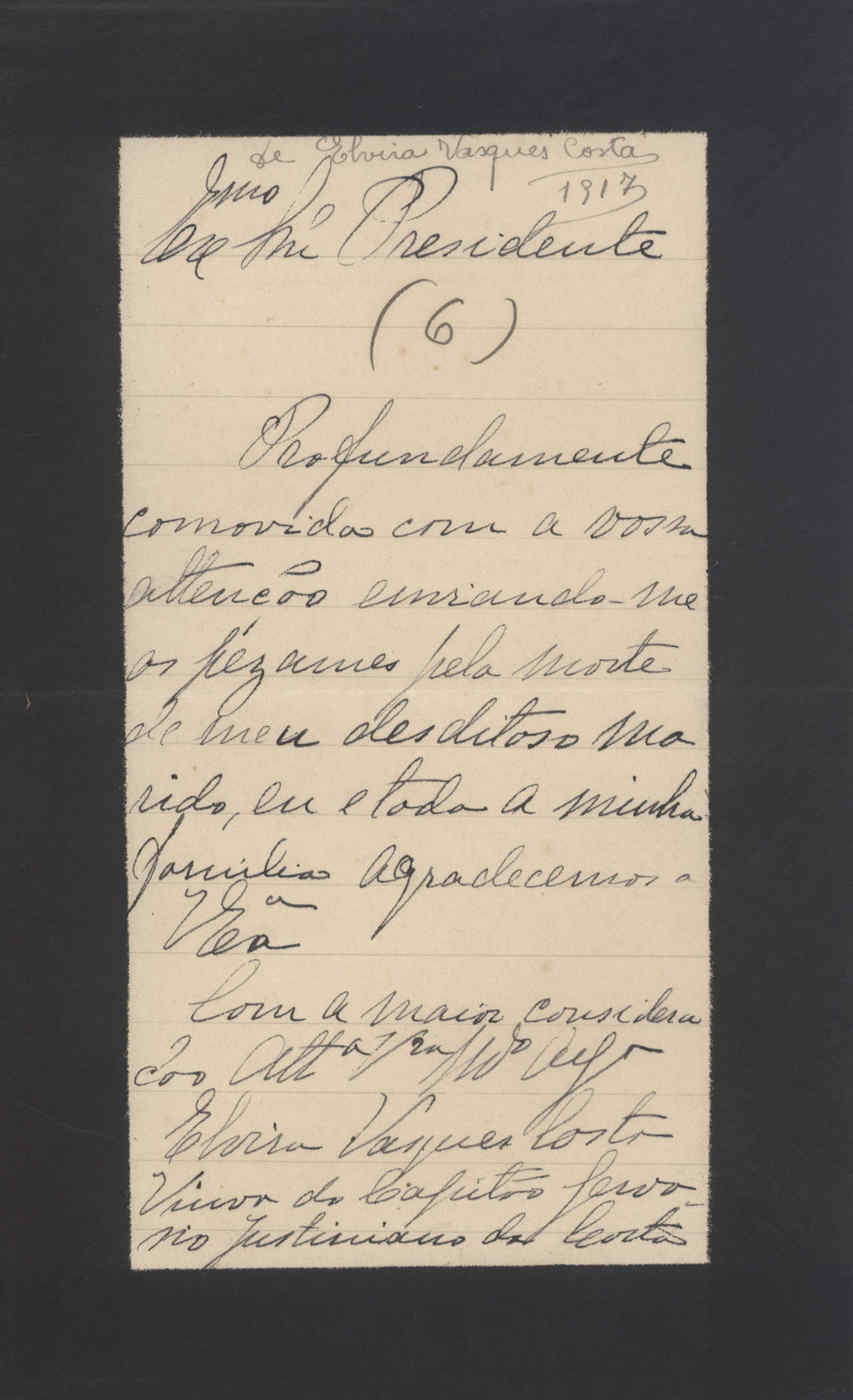 de Elvira Vasques Costa
1917
Exmo
Snr Presidente
(6)
Profundamente
comovida com a vossa
attenção enviando-me
os pêzames pela morte
de meu desditoso ma
rido, eu e toda a minha
familia agradecemos a
V Exa
Com a maior considera
ção Atta Vra Mto Obga
Elvira Vasques Costa
Viuva do Capitão Gerva-
sio Justiniano da Costa